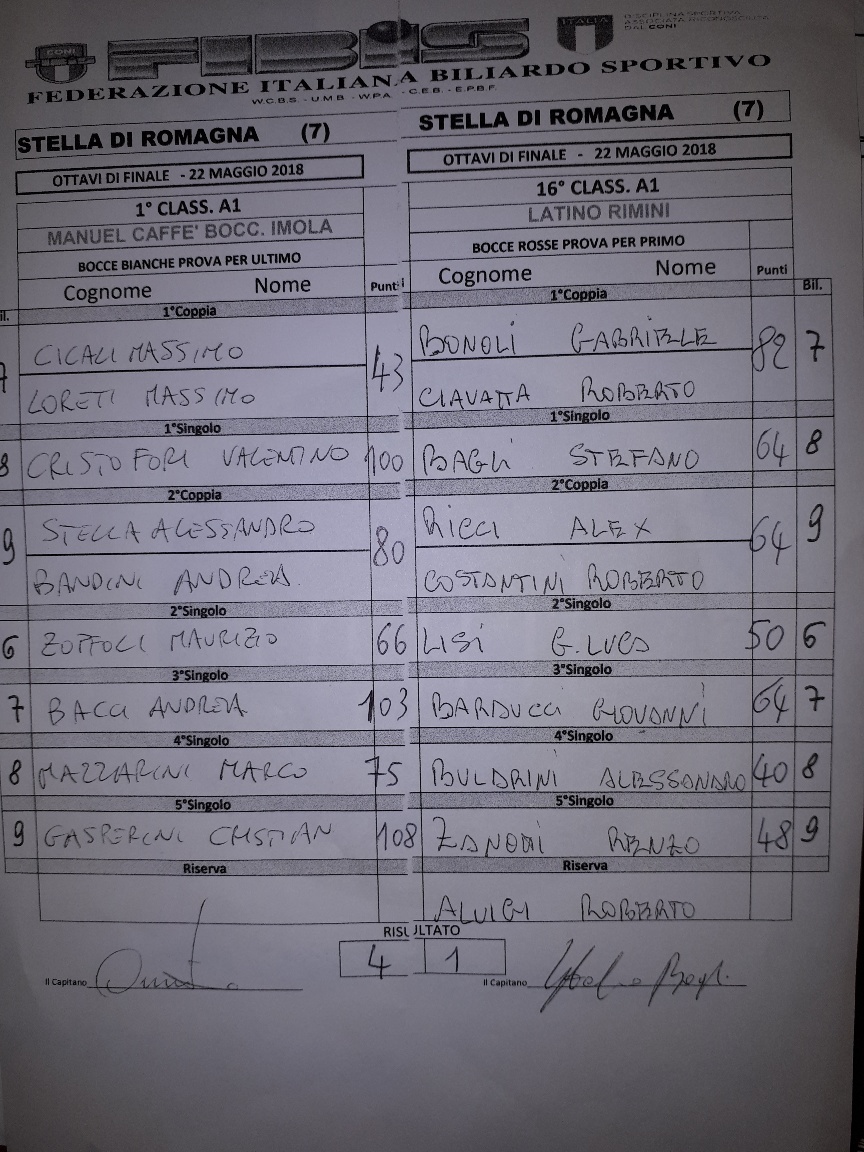 CONI
FIBIS
ITALIA
DISCIPLINA SPORTIVA
ASSOCIATA RICONOSCIUTA
DAL CONI
FEDERAZIONE ITALIANA BILIARDO SPORTIVO
W.C.B.S - U.M.B - W.P.A. - C.E.B. - E.P.B.F.
STELLA DI ROMAGNA (7) STELLA DI ROMAGNA (7)
OTTAVI DI FINALE - 22 MAGGIO 2018 OTTAVI DI FINALE - 22 MAGGIO 2018
1° CLASS. A1 16° CLASS. A1
MANUEL CAFFE' BOCC. IMOLA LATINO RIMINI
BOCCE BIANCHE PROVA PER ULTIMO BOCCE ROSSE PROVA PER PRIMO
Cognome Nome Punti Cognome Nome Punti Bil.
1°Coppia 1°Coppia
CICALI MASSIMO 43 BONOLI GABRIELE 82 7
LORETI MASSIMO CIAVATTA ROBERTO
1°Singolo 1°Singolo
8 CRISTOFORI VALENTINO 100 BAGLI STEFANO 64 8
2°Coppia 2°Coppia
9 STELLA ALESSANDRO 80 RICCI ALEX 64 9
BANDINI ANDREA COSTANTINI ROBERTO
2°Singolo 2°Singolo
6 ZOFFOLI MAURIZIO 66 LISI G.LUCA 50 6
3°Singolo 3°Singolo
7 BACCI ANDREA 103 BARDUCCI GIOVANNI 64 7
4°Singolo 4°Singolo
8 MAZZARINI MARCO 75 BULDRINI ALESSANDRO 40 8
5°Singolo 5°Singolo
9 GASPERINI CRISTIAN 108 ZANONI RENZO 48 9
Riserva Riserva
ALUIGI ROBERTO
RISULTATO
4 1
Il Capitano Il Capitano